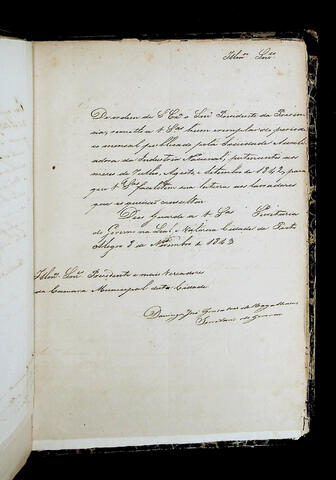 Illmos Snrs
De ordem de S. Exa o Snr Presidente da Provin-
cia, remetto a V. Sas hum exemplar do periodi-
co mensal publicado pela Sociedade Auxilia-
dora da Industria Nacional, pertencente aos
mezes de Julho, Agosto, e Setembro de 1842, para
que V. Sas facilitem sua leitura aos lavradores
que os queirão consultar.
Deos Guarde a V. Sas Secretaria
do Governo na Leal, e Valorosa Cidade de Porto
Alegre 8 de Novembro de 1843
Illmos Snrs Presidente e mais Vereadores
da Camara Municipal desta Cidade
Domingos José Gonçalves de Magalhaens
Secretario do Governo